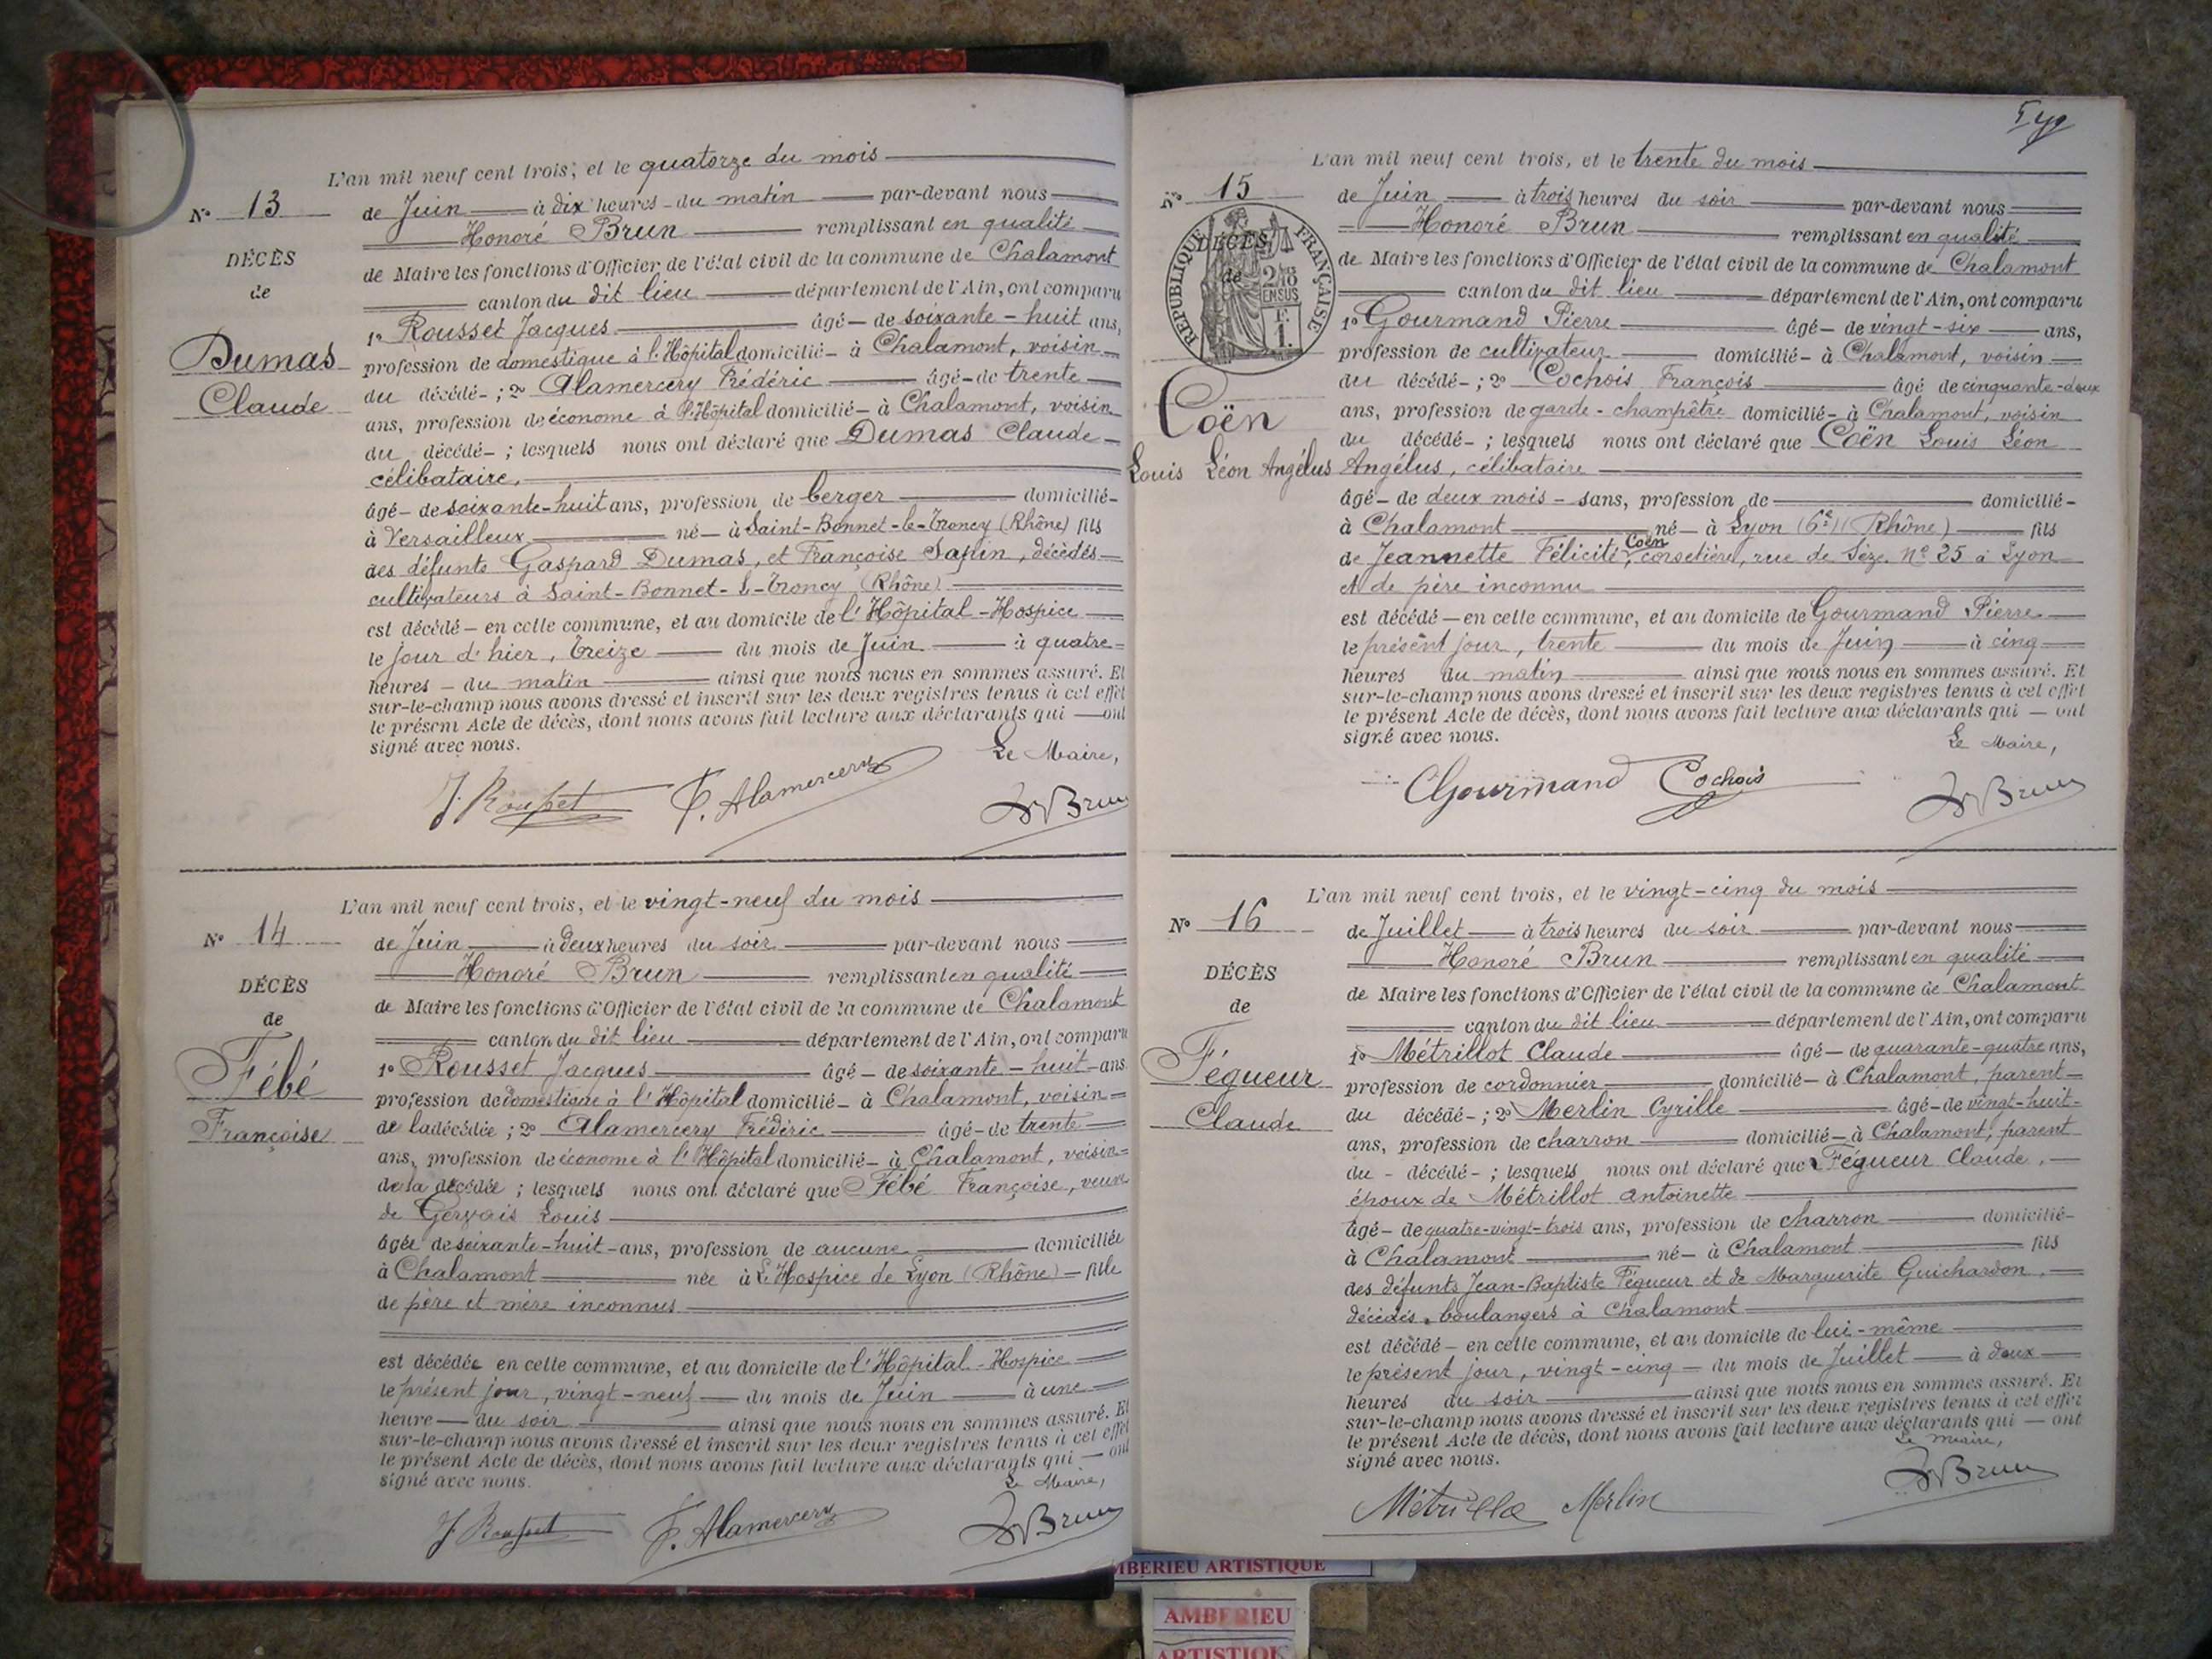 L'an mil neuf cent trois, et le quatorze du mois
N° 13
de Juin à dix heures du matin par-devant nous
Honoré Brun remplissant en qualité
DÉCÈS
de Maire les fonctions d'Officier de l'état civil de la commune de Chalamont
de
canton du dit lieu département de l'Ain, ont comparu
1° Rousset Jacques âgé de soixante-huit ans,
Dumas
profession de domestique à l'Hôpital domicilié à Chalamont, voisin
Claude
du décédé ; 2° Alamercery Frédéric âgé de trente
ans, profession de économe à l'Hôpital domicilié à Chalamont, voisin
du décédé ; lesquels nous ont déclaré que Dumas Claude
célibataire,
âgé de soixante-huit ans, profession de berger domicilié
à Versailleux né à Saint-Bonnet-le-Troncy (Rhône) fils
des défunts Gaspard Dumas, et Françoise Sapin, décédés
cultivateurs à Saint-Bonnet-le-Troncy (Rhône)
est décédé en cette commune, et au domicile de l'Hôpital-Hospice
le jour d'hier, treize du mois de Juin à quatre
heures du matin ainsi que nous nous en sommes assuré. Et
sur-le-champ nous avons dressé et inscrit sur les deux registres tenus à cet effet
le présent Acte de décès, dont nous avons fait lecture aux déclarants qui ont
signé avec nous.
Le Maire,
J. Rousset F. Alamercery H Brun
L'an mil neuf cent trois, et le vingt-neuf du mois
N° 14
de Juin à deux heures du soir par-devant nous
Honoré Brun remplissant en qualité
DÉCÈS
de Maire les fonctions d'Officier de l'état civil de la commune de Chalamont
de
canton du dit lieu département de l'Ain, ont comparu
1° Rousset Jacques âgé de soixante-huit ans
Fébé
profession de domestique à l'Hôpital domicilié à Chalamont, voisin
Françoise
de la décédée ; 2° Alamercery Frédéric âgé de trente
ans, profession de économe à l'Hôpital domicilié à Chalamont, voisin
de la décédée ; lesquels nous ont déclaré que Fébé Françoise, veuve
de Gervais Louis
âgée de soixante-huit ans, profession de aucune domiciliée
à Chalamont née à l'Hospice de Lyon (Rhône) fille
de père et mère inconnus
est décédée en cette commune, et au domicile de l'Hôpital-Hospice
le présent jour, vingt-neuf du mois de Juin à une
heure du soir ainsi que nous nous en sommes assuré. Et
sur-le-champ nous avons dressé et inscrit sur les deux registres tenus à cet effet
le présent Acte de décès, dont nous avons fait lecture aux déclarants qui ont
signé avec nous.
Le Maire,
J. Rousset F. Alamercery H Brun
L'an mil neuf cent trois, et le trente du mois
N° 15
de Juin à trois heures du soir par-devant nous
Honoré Brun remplissant en qualité
RÉPUBLIQUE FRANÇAISE
DÉCÈS
de Maire les fonctions d'Officier de l'état civil de la commune de Chalamont
de
canton du dit lieu département de l'Ain, ont comparu
1° Gourmand Pierre âgé de vingt-six ans,
profession de cultivateur domicilié à Chalamont, voisin
du décédé ; 2° Cochois François âgé de cinquante-deux
ans, profession de garde-champêtre domicilié à Chalamont, voisin
Coën
du décédé ; lesquels nous ont déclaré que Coën Louis Léon
Louis Léon Angélus
Angélus, célibataire
âgé de deux mois ans, profession de domicilié
à Chalamont né à Lyon (6e) (Rhône) fils
de Jeannette Félicité Coën, corsetière, rue de Sèze, N° 35 à Lyon
et de père inconnu
est décédé en cette commune, et au domicile de Gourmand Pierre
le présent jour, trente du mois de Juin à cinq
heures du matin ainsi que nous nous en sommes assuré. Et
sur-le-champ nous avons dressé et inscrit sur les deux registres tenus à cet effet
le présent Acte de décès, dont nous avons fait lecture aux déclarants qui ont
signé avec nous.
Le Maire,
Gourmand Cochois H Brun
L'an mil neuf cent trois, et le vingt-cinq du mois
N° 16
de Juillet à trois heures du soir par-devant nous
Honoré Brun remplissant en qualité
DÉCÈS
de Maire les fonctions d'Officier de l'état civil de la commune de Chalamont
de
canton du dit lieu département de l'Ain, ont comparu
1° Métrillot Claude âgé de quarante-quatre ans,
Fégueur
profession de cordonnier domicilié à Chalamont, parent
Claude
du décédé ; 2° Merlin Cyrille âgé de vingt-huit
ans, profession de charron domicilié à Chalamont, parent
du décédé ; lesquels nous ont déclaré que Fégueur Claude,
époux de Métrillot Antoinette
âgé de quatre-vingt-trois ans, profession de charron domicilié
à Chalamont né à Chalamont fils
des défunts Jean-Baptiste Fégueur et de Marguerite Guichardon,
décédés, boulangers à Chalamont
est décédé en cette commune, et au domicile de lui-même
le présent jour, vingt-cinq du mois de Juillet à deux
heures du soir ainsi que nous nous en sommes assuré. Et
sur-le-champ nous avons dressé et inscrit sur les deux registres tenus à cet effet
le présent Acte de décès, dont nous avons fait lecture aux déclarants qui ont
signé avec nous.
Le Maire,
Métrillot Merlin H Brun
AMBERIEU ARTISTIQUE
AMBERIEU